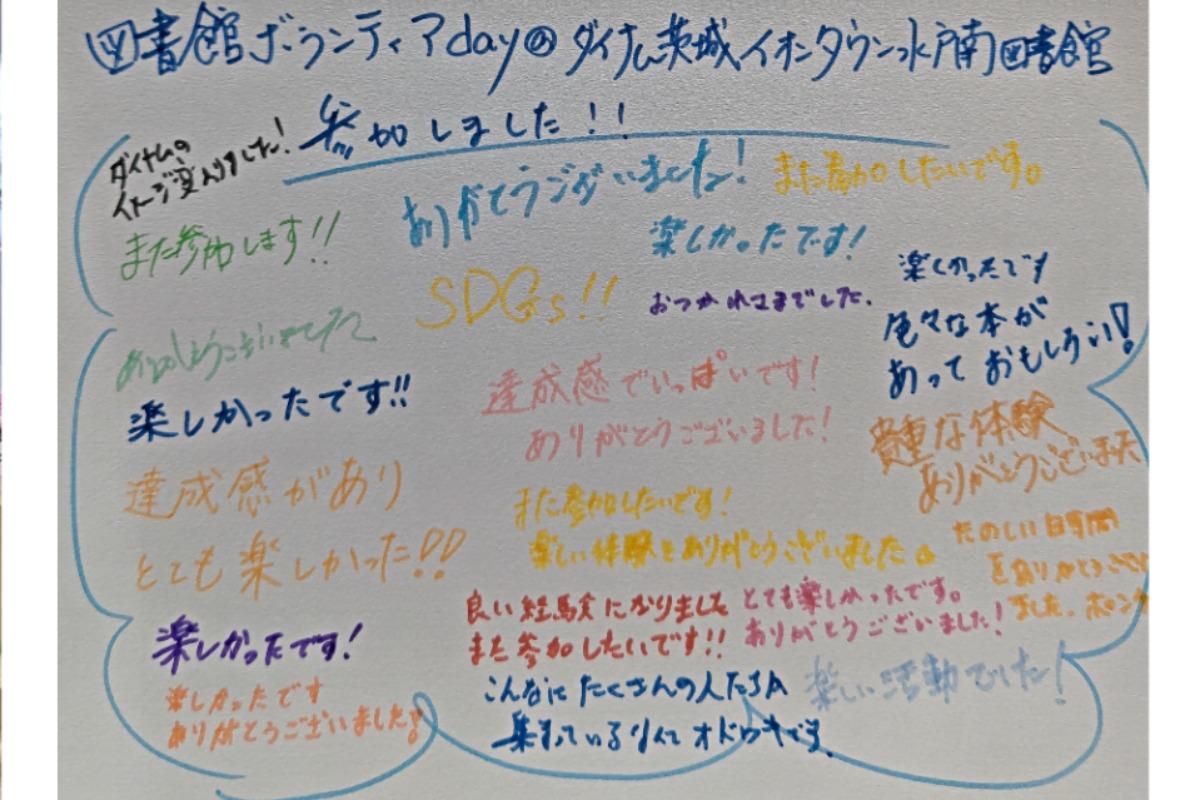 図書館ボランティアday@ダイナム茨城イオンタウン水戸南図書館
参加しました!!
ダイナムの
イメージ変わりました!
ありがとうございました!
また参加したいです。
また参加します!!
楽しかったです!
SDGs!!
おつかれさまでした.
楽しかったです
色々な本が
あっておもしろい!
ありがとうございました
楽しかったです!!
達成感でいっぱいです!
ありがとうございました!
貴重な体験
ありがとうございました
達成感があり
とても楽しかった!!
また参加したいです!
楽しい体験をありがとうございました。
たのしい時間
をありがとうござい
ました、
良い経験になりました
また参加したいです!!
とても楽しかったです。
ありがとうございました!
楽しかったです!
楽しかったです
ありがとうございました!
こんなにたくさんの人たちが
集まっているなんてオドロキです.
楽しい活動でした!